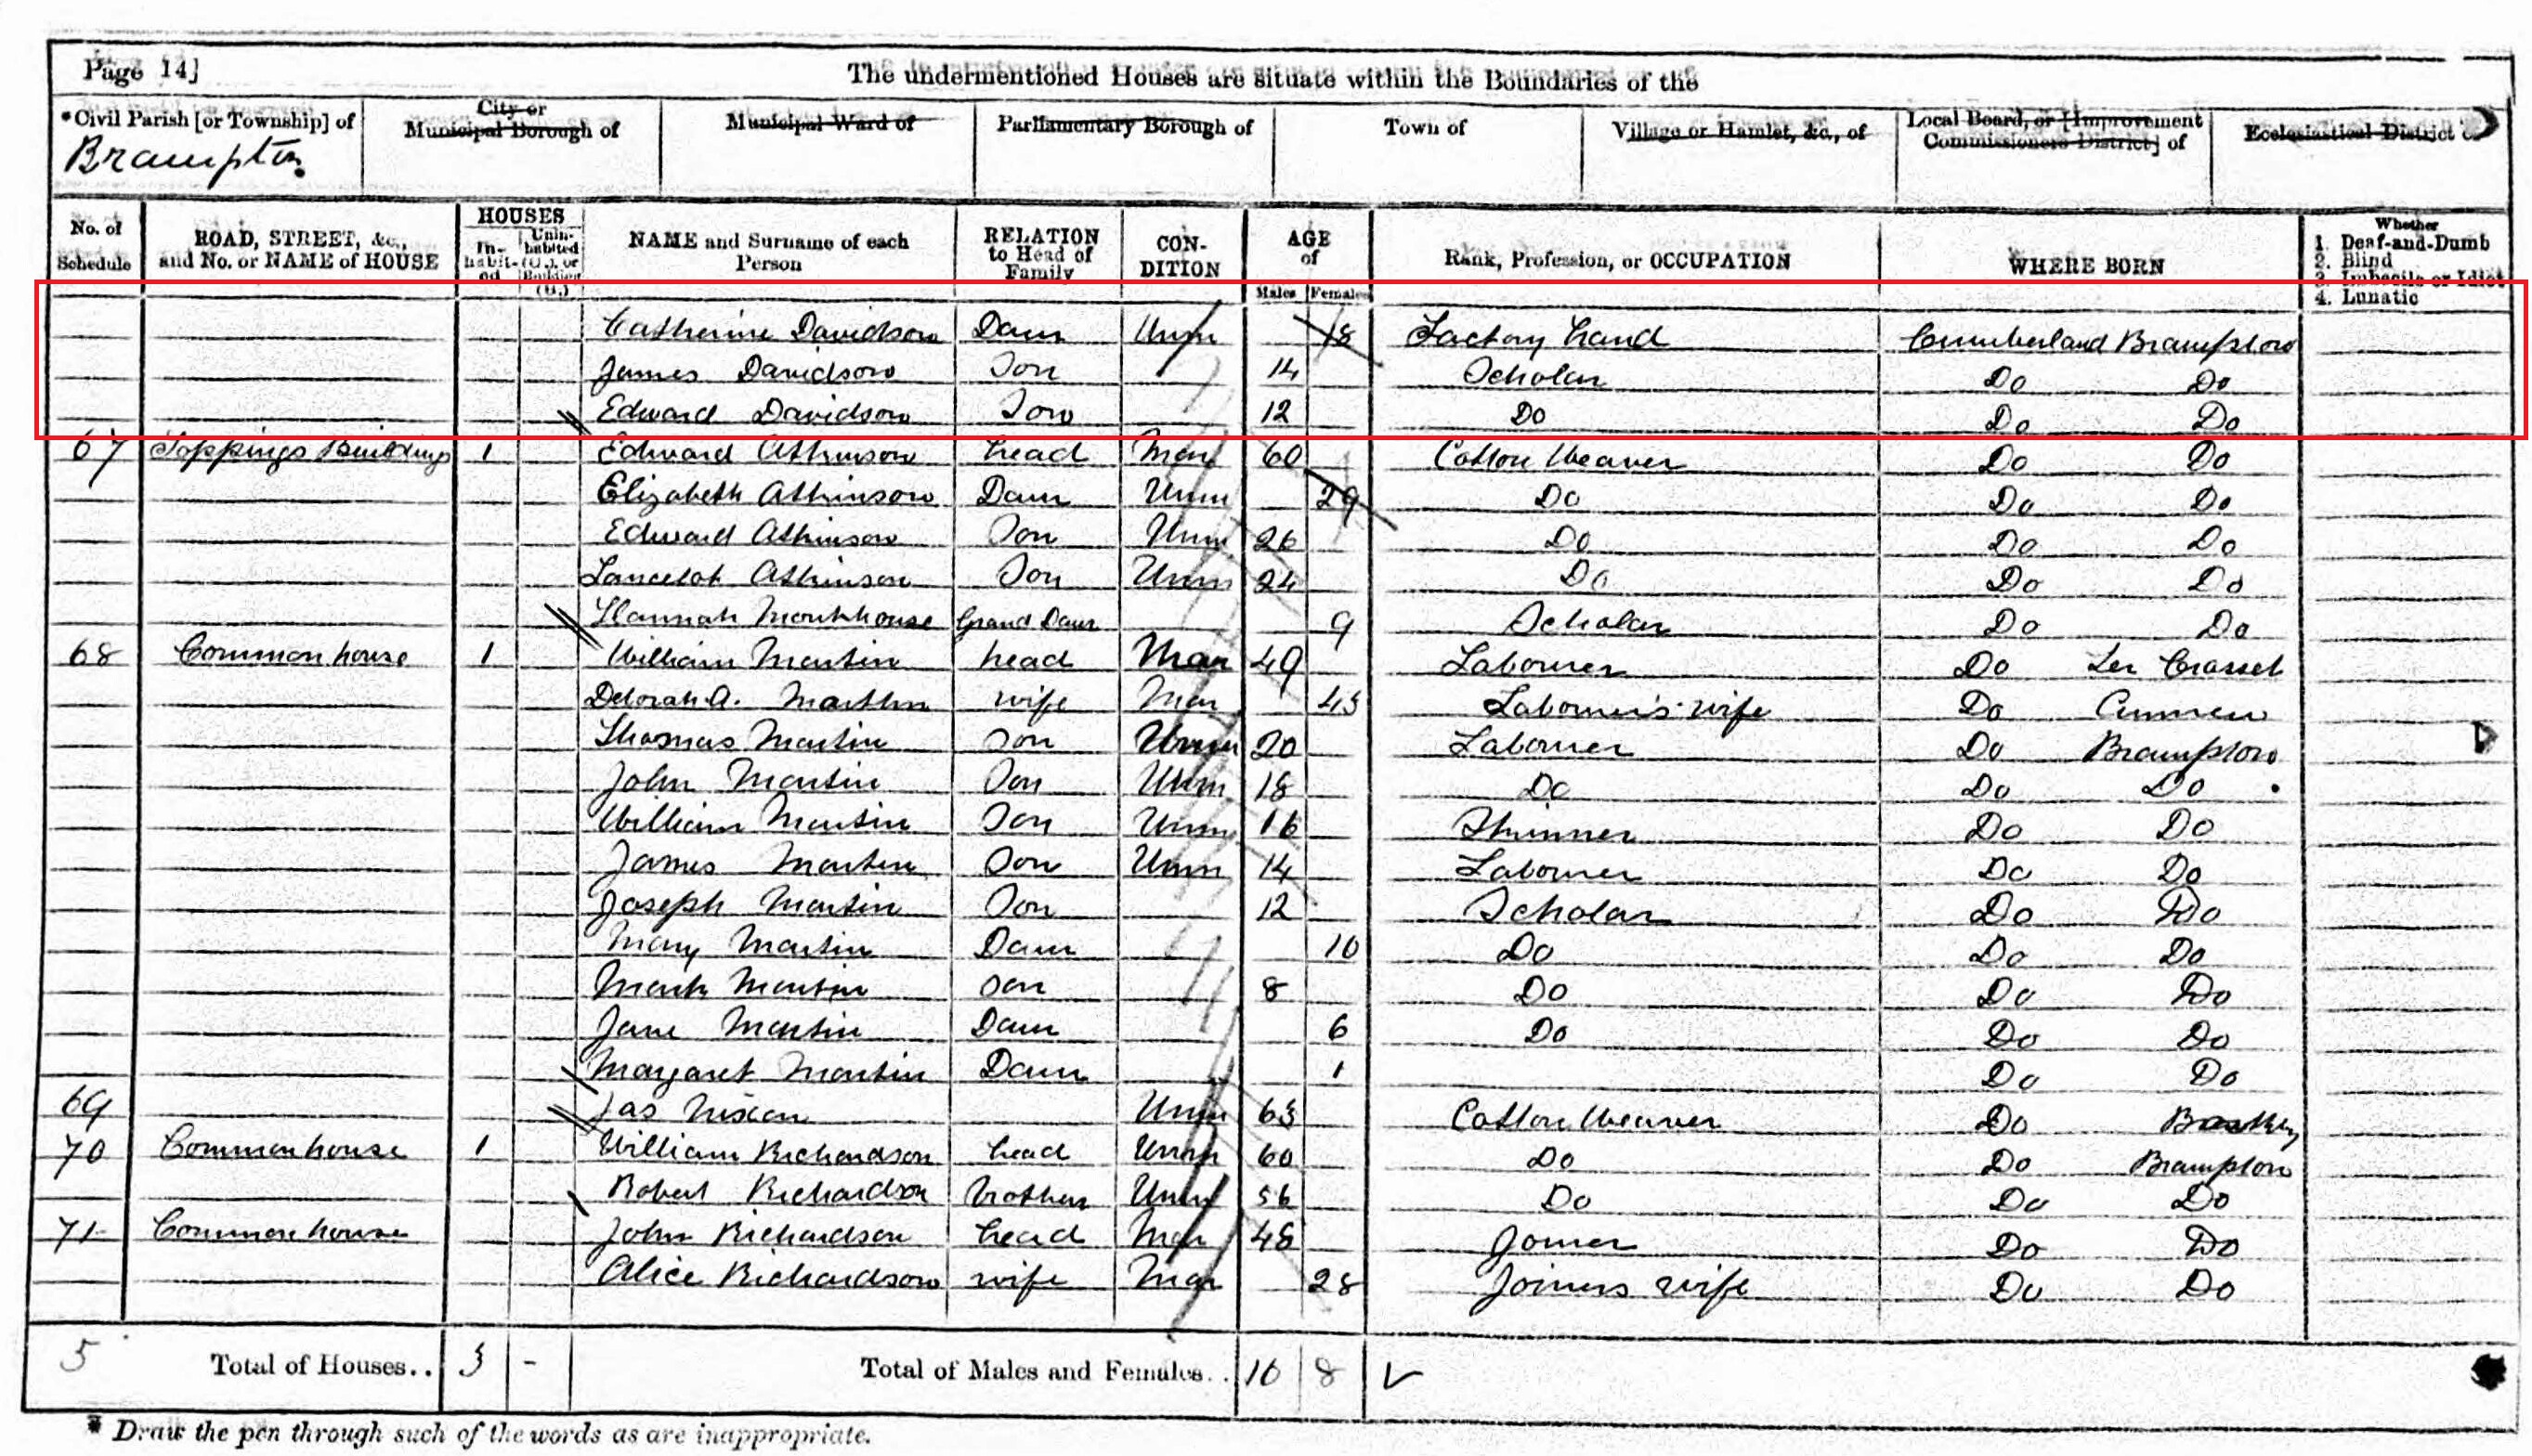 Page 14]
The undermentioned Houses are situate within the Boundaries of the
*Civil Parish [or Township] of City or Municipal Borough of Municipal Ward of Parliamentary Borough of Town of Village or Hamlet, &c., of Local Board, or [Improvement Commissioners District] of Ecclesiastical District
Brampton
No. of Schedule ROAD, STREET, &c., and No. or NAME of HOUSE HOUSES In-habit-ed Unin-habited (U.), or Building (B.) NAME and Surname of each Person RELATION to Head of Family CON-DITION AGE of Males Females Rank, Profession, or OCCUPATION WHERE BORN Whether 1. Deaf-and-Dumb 2. Blind 3. Imbecile or Idiot 4. Lunatic
Catherine Davidson Daur Unm 18 Factory hand Cumberland Brampton
James Davidson Son 14 Scholar Do Do
Edward Davidson Son 12 Do Do Do
67 Toppings Buildings 1 Edward Atkinson head Mar 60 Cotton Weaver Do Do
Elizabeth Atkinson Daur Unm 29 Do Do Do
Edward Atkinson Son Unm 26 Do Do Do
Lancelot Atkinson Son Unm 24 Do Do Do
Hannah Monkhouse Grand Daur 9 Scholar Do Do
68 Common house 1 William Martin head Mar 49 Labourer Do
Deborah A. Martin wife Mar 45 Labourer's wife Do
Thomas Martin Son Unm 20 Labourer Do Brampton
John Martin Son Unm 18 Do Do Do
William Martin Son Unm 16 Do Do
James Martin Son Unm 14 Labourer Do Do
Joseph Martin Son 12 Scholar Do Do
Mary Martin Daur 10 Do Do Do
Mark Martin Son 8 Do Do Do
Jane Martin Daur 6 Do Do Do
Margaret Martin Daur 1 Do Do
69 Jas Nixon Unm 63 Cotton Weaver Do
70 Common house 1 William Richardson head Unm 60 Do Do Brampton
Robert Richardson brother Unm 56 Do Do Do
71 Common house John Richardson head Mar 48 Joiner Do Do
Alice Richardson wife Mar 28 Joiners wife Do Do
5 Total of Houses.. 3 - Total of Males and Females.. 16 8
* Draw the pen through such of the words as are inappropriate.